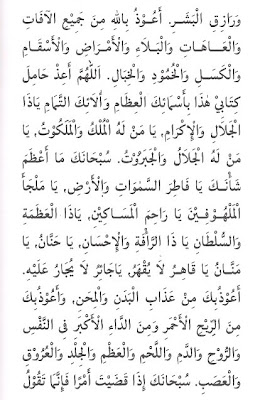 وَرَازِقِ الْبَشَرِ. أَعُوْذُ بِاللهِ مِنْ جَمِيْعِ الْآفَاتِ
وَالْعَـاهَـاتِ وَالْبَـلَاءِ وَالْأَمْـرَاضِ وَالْأَسْقَـامِ
وَالْكَسَـلِ وَالْخُمُوْدِ وَالْخَبَالِ. اَللّٰهُمَّ أَعِذْ حَامِلَ
كِتَابِيْ هٰذَا بِأَسْمَائِكَ الْعِظَامِ وَآلَائِكَ التَّمَامِ يَاذَا
الْجَلَالِ وَالْإِكْرَامِ, يَا مَنْ لَهُ الْمُلْكُ وَالْمَلَكُوْتُ, يَا
مَنْ لَهُ الْجَلَالُ وَالْجَبَرُوْتُ. سُبْحَانَكَ مَا أَعْظَمَ
شَأْنَـكَ يَا فَاطِرَ السَّمٰوَاتِ وَالْأَرْضِ, يَا مَلْجَأَ
الْمَلْهُـوْفِيْنَ يَا رَاحِمَ الْمَسَـاكِيْنِ, يَاذَا الْعَظَمَةِ
وَالسُّلْطَانِ يَا ذَا الرَّأْفَةِ وَالْإِحْسَانِ, يَا حَنَّانُ, يَا
مَنَّـانُ يَا قَاهِـرُ لَا يُقْهَرُ, يَاجَائِرُ لَا يُجَارُ عَلَيْهِ.
أَعُوْذُبِكَ مِنْ عَذَابِ الْبَدَنِ وَالْمِحَنِ, وَأَعُوْذُبِكَ
مِنَ الرِّيْحِ الْأَحْمَرِ وَمِنَ الدَّاءِ الْأَكْبَرِ فِى النَّفْسِ
وَالرُّوْحِ وَالدَّمِ وَاللَّحْمِ وَالْعَظْمِ وَالْجِلْدِ وَالْعُرُوْقِ
وَالْعَصَبِ. سُبْحَانَكَ إِذَا قَضَيْتَ أَمْرًا فَإِنَّمَا تَقُوْلُ